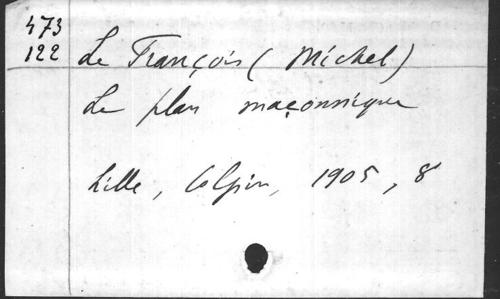 473
122
Le François (Michel)
Le plan maçonnique
Lille, Colpin, 1905, 8º